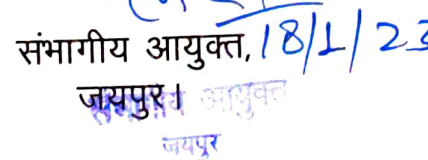 संभागीय आयुक्त, 18/1/23
जयपुर।
संभागीय आयुक्त
जयपुर